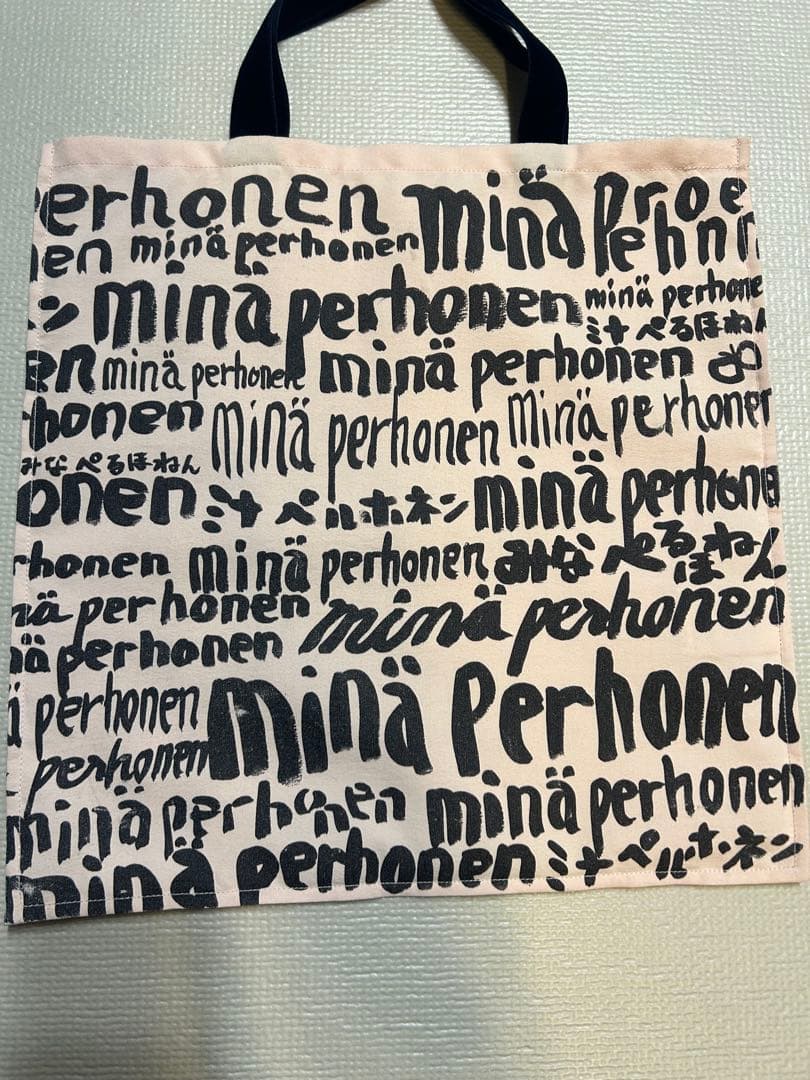 erhonen minä Proe
en minä perhonen Pehnn
ン minä perhonen minä perhone
ミナ ぺるほねん
en minä perhonen minä perhonen
honen minä perhonen minä perhonen
みな ぺるほねん
onen ミナ ペルホネン minä perhone
rhonen minä perhonen みな ぺるほねん
nä perhonen minä perhonen
ä perhonen
ä perhonen minä Perhonen
perhonen
minä perhonen minä perhonen
minä perhonen ミナ ペルホネン